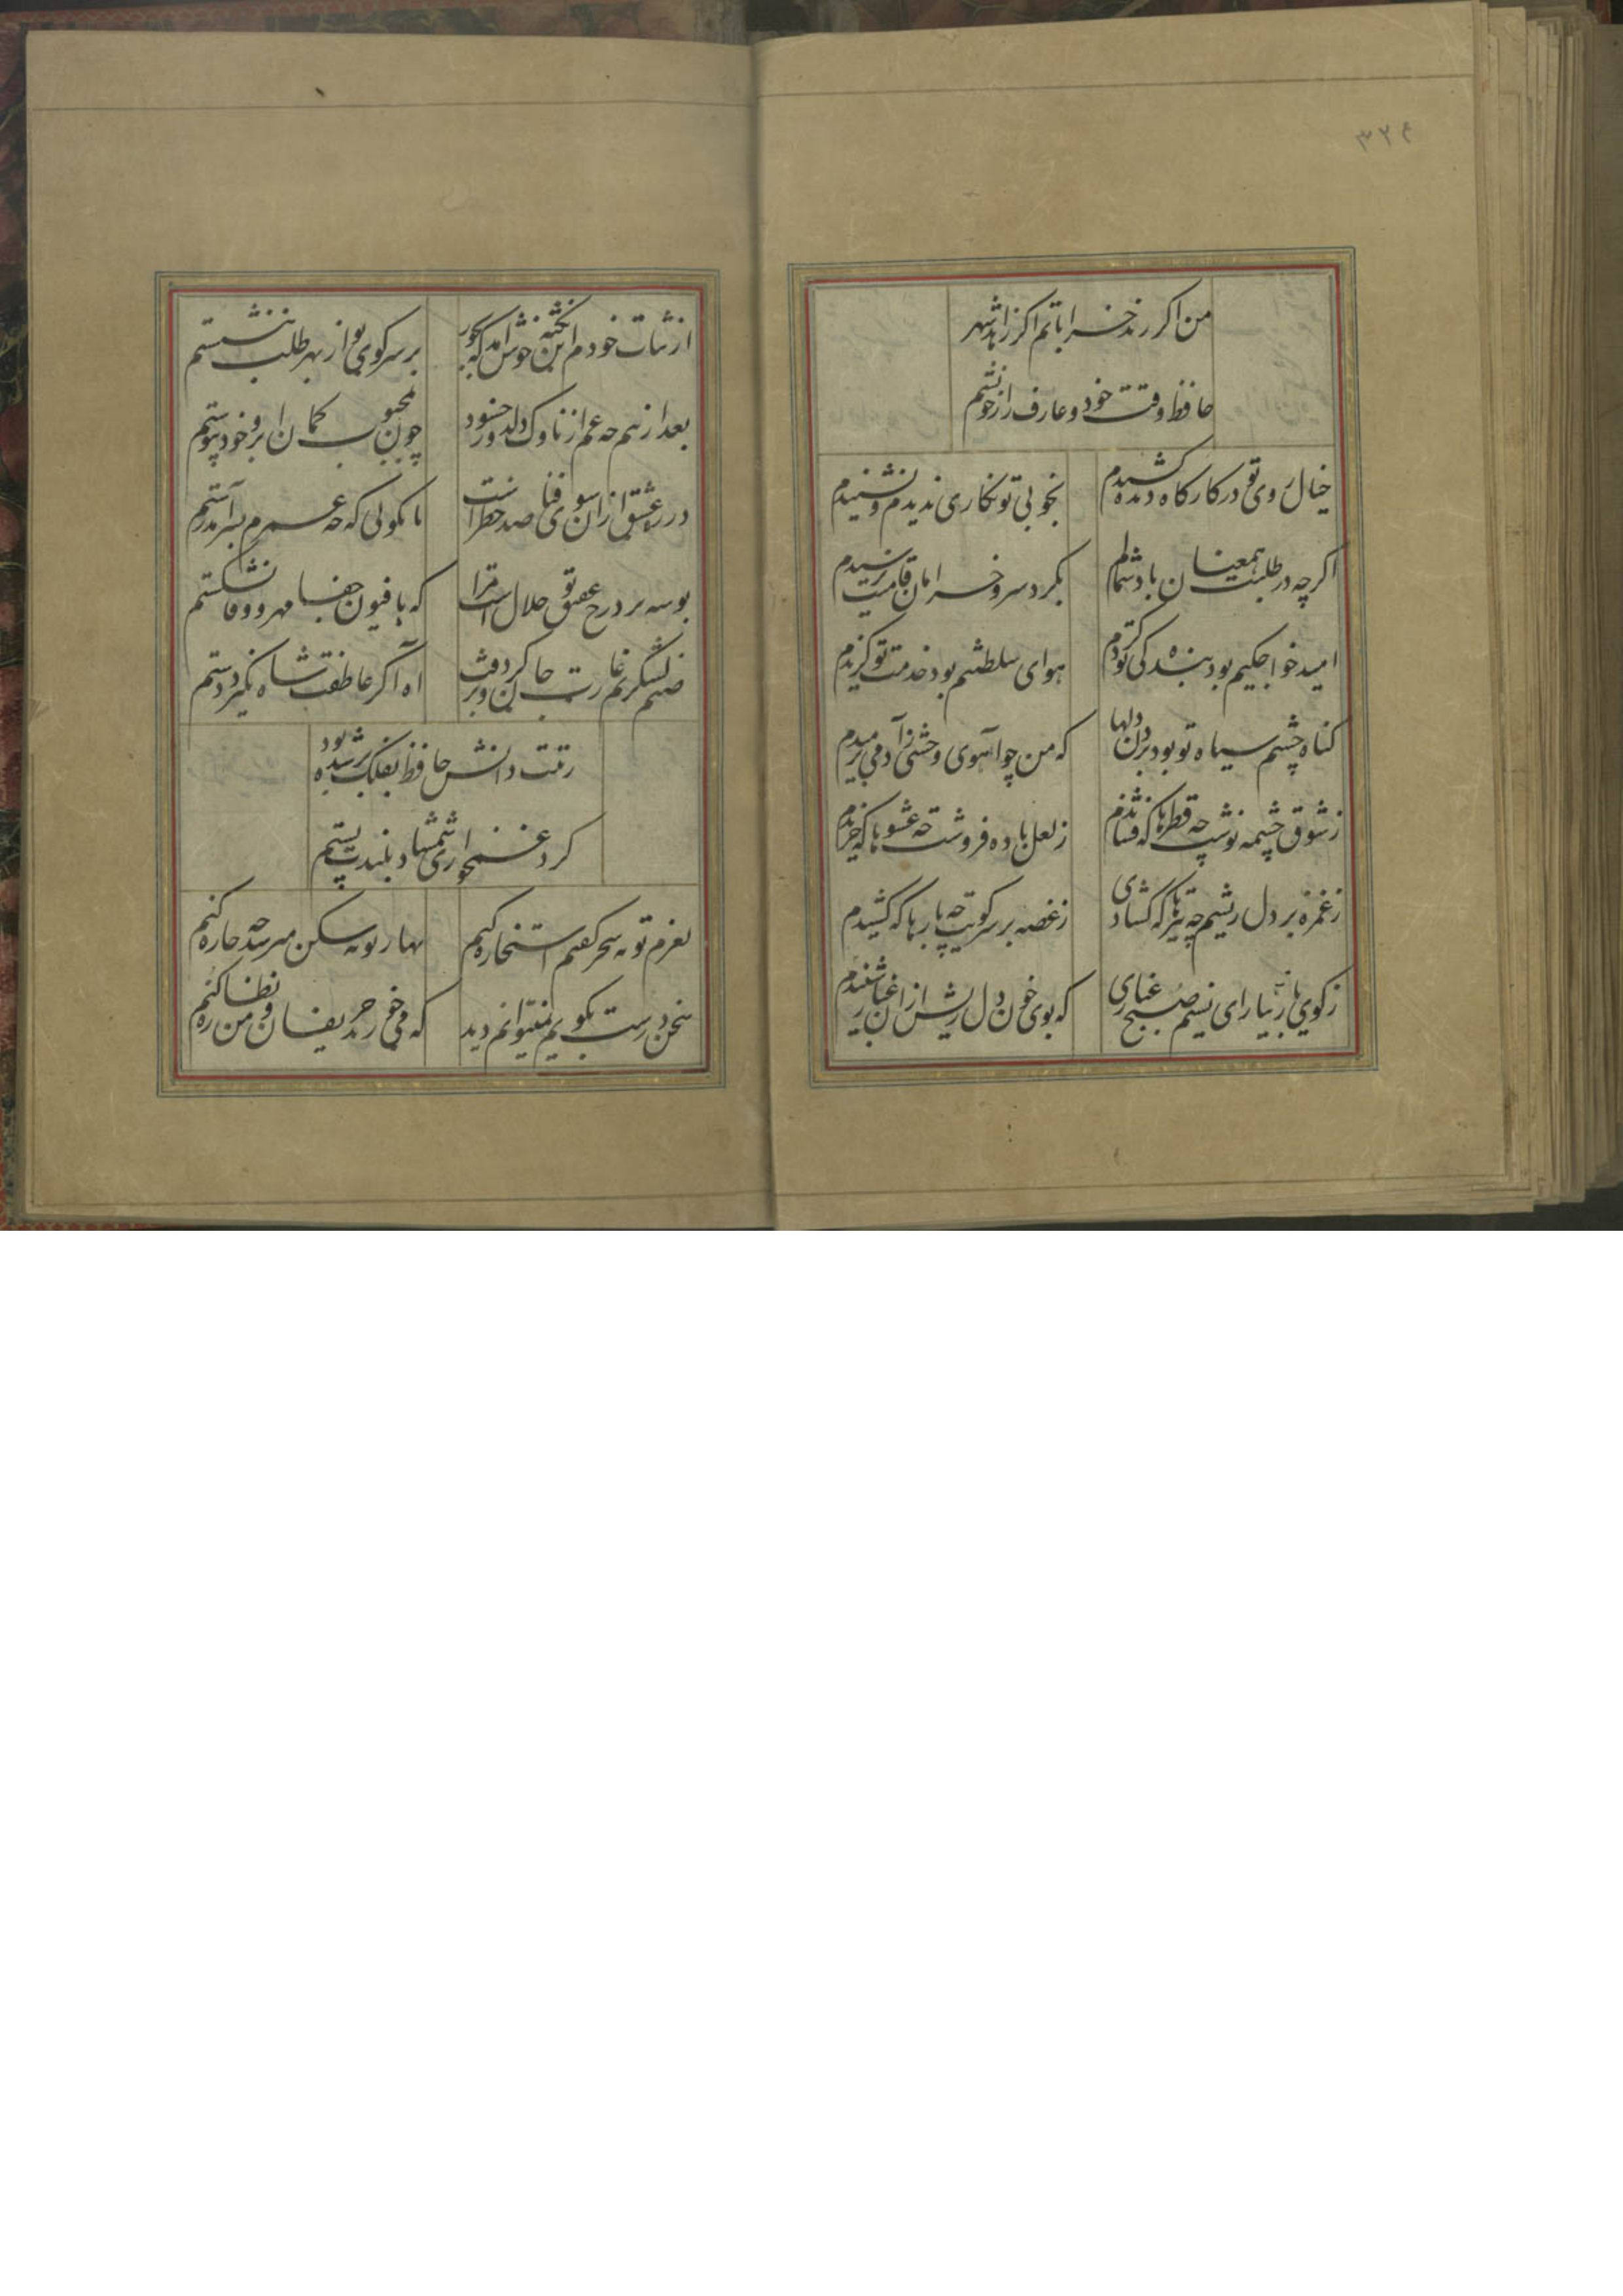 ۳۲۶
من اگر رند خراباتم اگر زاهد شهر
حافظ وقت خود و عارف راز خویشم
خیال روی تو در کارگاه دیده کشیدم
بخوبی تو نگاری ندیدم و نشنیدم
اگرچه در طلبت همعنان باد شمالم
بگرد سرو خرامان قامتت نرسیدم
امید خواجگیم بود بندگی تو کردم
هوای سلطنتم بود خدمت تو گزیدم
گناه چشم سیاه تو بود بردن دلها
که من چو آهوی وحشی ز آدمی برمیدم
ز شوق چشمه نوشت چه قطرها که فشاندم
ز لعل باده فروشت چه عشوها که خریدم
ز غمزه بر دل ریشم چه تیرها که گشادی
ز غصه بر سر کویت چه بارها که کشیدم
ز کوی یار بیار ای نسیم صبح غباری
که بوی خون دل ریش از آن غبار شنیدم
از ثبات خودم این نکته خوش آمد که بجور
بر سر کوی تو از بهر طلب ننشستم
بعد ازینم چه غم از ناوک دلدوز حسود
چون بمحبوب کمان ابروی خود پیوستم
در ره عشق از آن سوی فنا صد خطر است
تا نگویی که چه عمرم بسر آمد رستم
بوسه بر درج عقیق تو حلال است مرا
که بافسون جفا مهر و وفا نشکستم
صنم لشگریم غارت جان کرد و برفت
آه اگر عاطفت شاه نگیرد دستم
رتبت دانش حافظ بفلک بر شده بود
کرد غمخواری شمشاد بلندت پستم
بعزم توبه سحر گفتم استخاره کنم
بهار توبه شکن میرسد چه چاره کنم
سخن درست بگویم نمیتوانم دید
که می خورند حریفان و من نظاره کنم